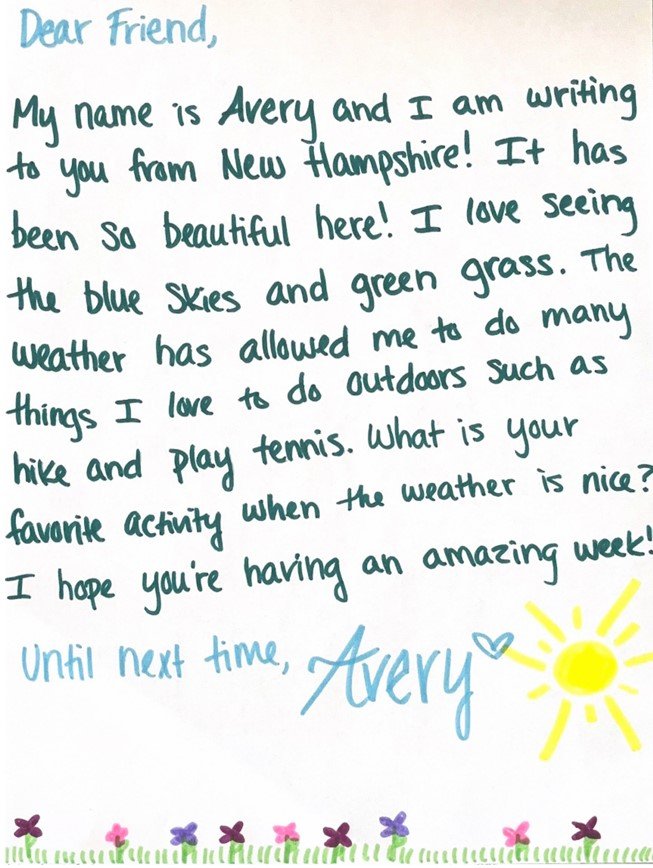 Dear Friend,
My name is Avery and I am writing
to you from New Hampshire! It has
been so beautiful here! I love seeing
the blue skies and green grass. The
weather has allowed me to do many
things I love to do outdoors such as
hike and play tennis. What is your
favorite activity when the weather is nice?
I hope you're having an amazing week!
Until next time, Avery